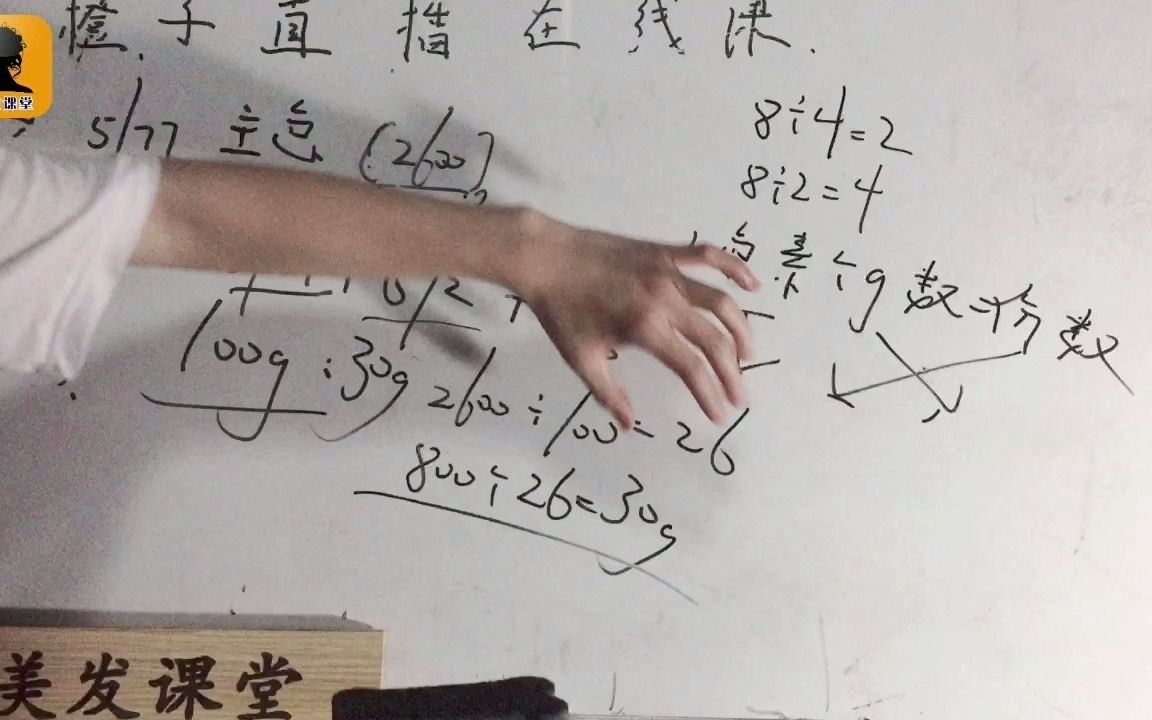 橙子直播在线课.
课堂
5/77 主色 (2600)
8÷4=2
8÷2=4
色素÷g数=份数
6/2
100g:30g
2600÷100=26
800÷26=30g
美发课堂